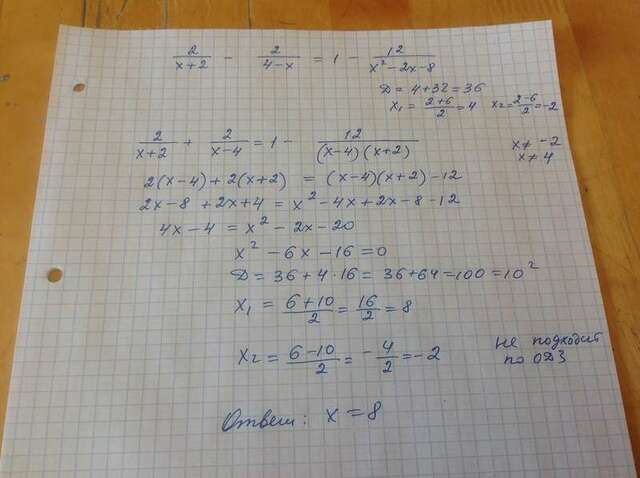 2/(x+2) - 2/(4-x) = 1 - 12/(x²-2x-8)
D = 4+32 = 36
x₁ = (2+6)/2 = 4 x₂ = (2-6)/2 = -2
2/(x+2) + 2/(x-4) = 1 - 12/((x-4)(x+2))
x ≠ -2
x ≠ 4
2(x-4)+2(x+2) = (x-4)(x+2)-12
2x-8+2x+4 = x²-4x+2x-8-12
4x-4 = x²-2x-20
x²-6x-16=0
D = 36+4·16 = 36+64=100=10²
x₁ = (6+10)/2 = 16/2 = 8
x₂ = (6-10)/2 = -4/2 = -2
не подходит
по ОДЗ
Ответ: x = 8